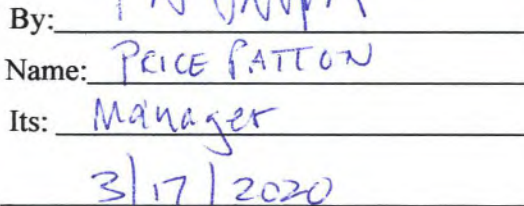 By:
Name: PRICE PATTON
Its: Manager
3/17/2020